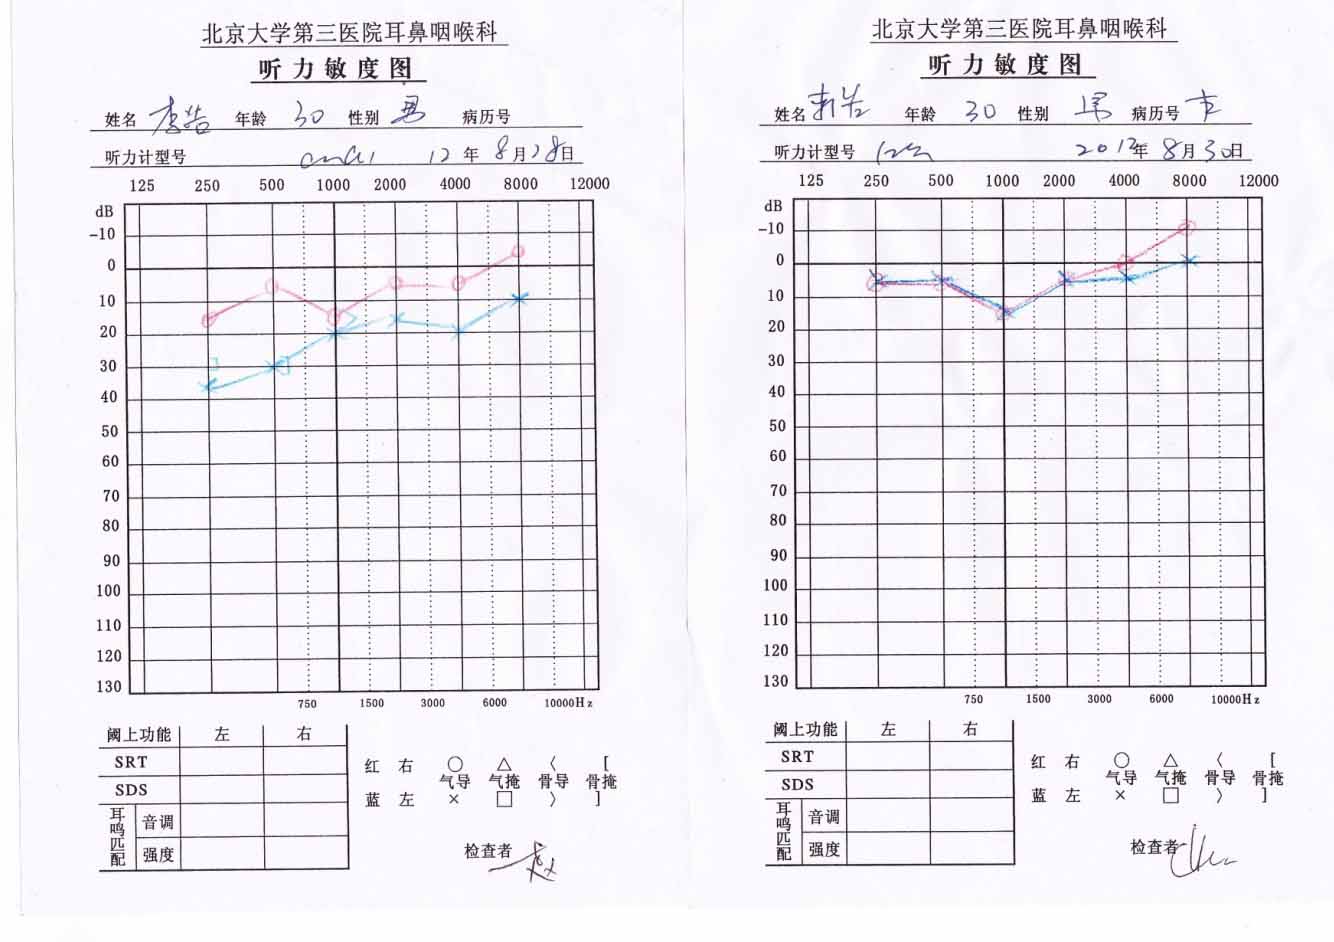 北京大学第三医院耳鼻咽喉科
听力敏度图
姓名 李浩 年龄 30 性别 男 病历号
听力计型号 12年8月28日
125 250 500 1000 2000 4000 8000 12000
dB
-10
0
10
20
30
40
50
60
70
80
90
100
110
120
130
750 1500 3000 6000 10000Hz
阈上功能 左 右
SRT
SDS
耳鸣匹配 音调
强度
红 右 ○ △ 〈 [
气导 气掩 骨导 骨掩
蓝 左 × □ 〉 ]
检查者
北京大学第三医院耳鼻咽喉科
听力敏度图
姓名 年龄 30 性别 男 病历号
听力计型号 2012年8月30日
125 250 500 1000 2000 4000 8000 12000
dB
-10
0
10
20
30
40
50
60
70
80
90
100
110
120
130
750 1500 3000 6000 10000Hz
阈上功能 左 右
SRT
SDS
耳鸣匹配 音调
强度
红 右 ○ △ 〈 [
气导 气掩 骨导 骨掩
蓝 左 × □ 〉 ]
检查者